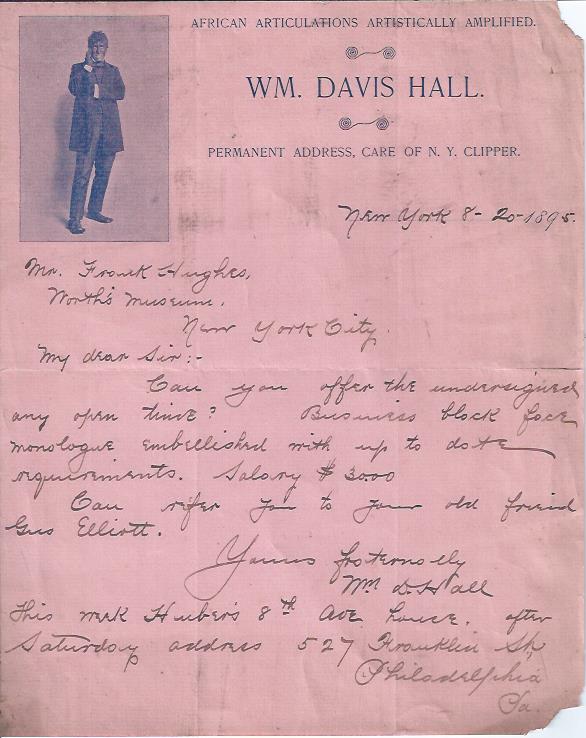 AFRICAN ARTICULATIONS ARTISTICALLY AMPLIFIED.
WM. DAVIS HALL.
PERMANENT ADDRESS, CARE OF N. Y. CLIPPER.
New York 8-20-1895.
Mr. Frank Hughes,
Worth's Museum,
New York City.
My dear Sir:-
Can you offer the undersigned
any open time? Business black face
monologue embellished with up to date
requirements. Salary $30.00
Can refer you to your old friend
Gus Elliott.
Yours fraternally
Wm D. Hall
This week Huber's 8th Ave. house. after
Saturday address 527 Franklin St,
Philadelphia
Pa.